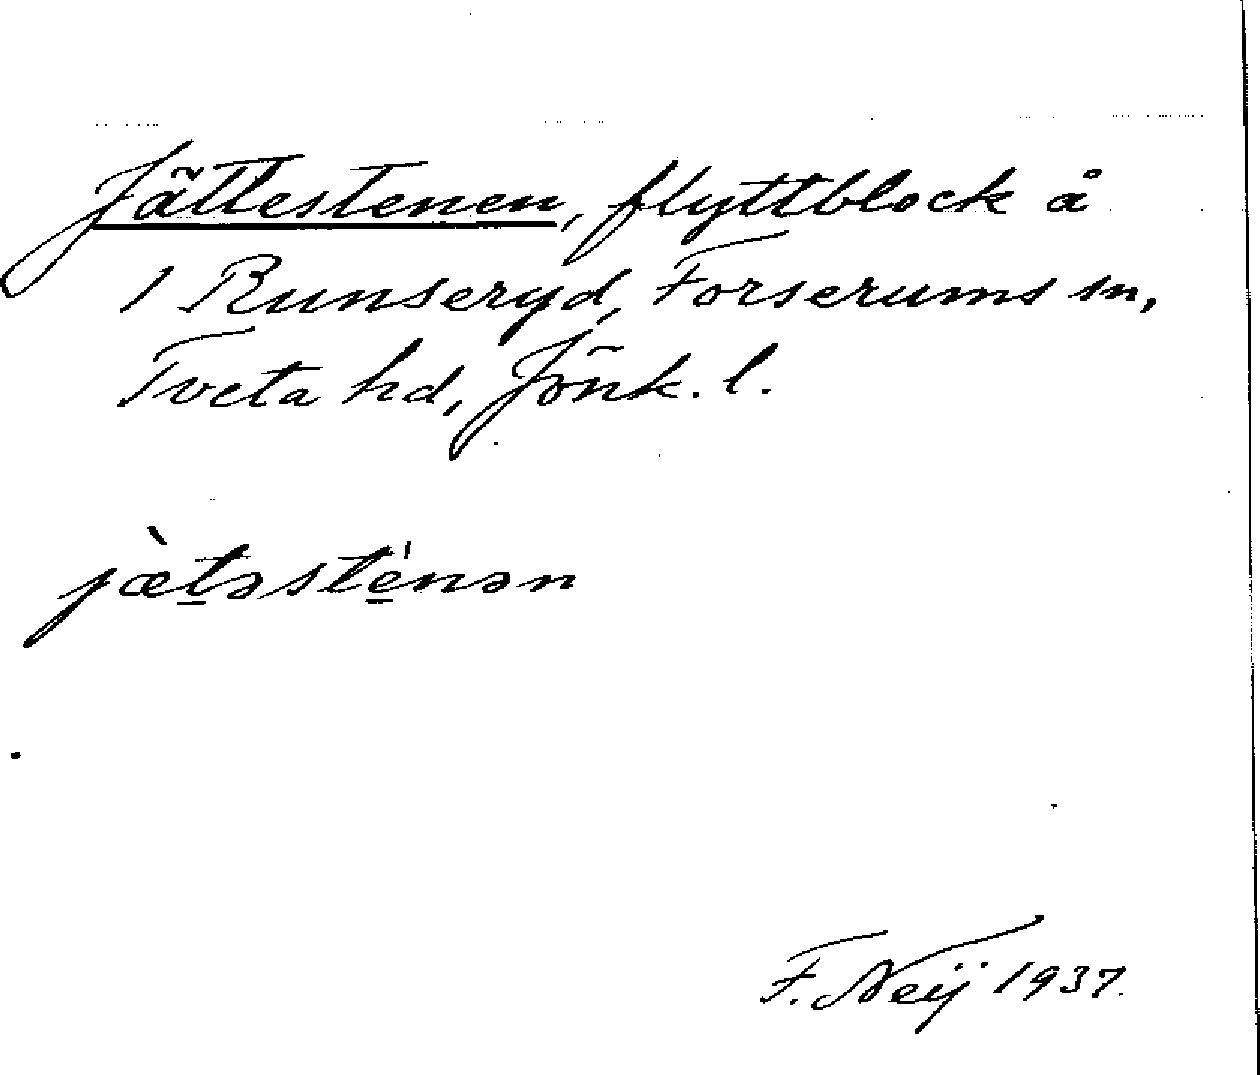 Jättestenen, flyttblock å
1 Runseryd, Forserums sn,
Tveta hd, Jönk. l.
jæ̀t̲əste̲̍nən
F. Neij 1937.